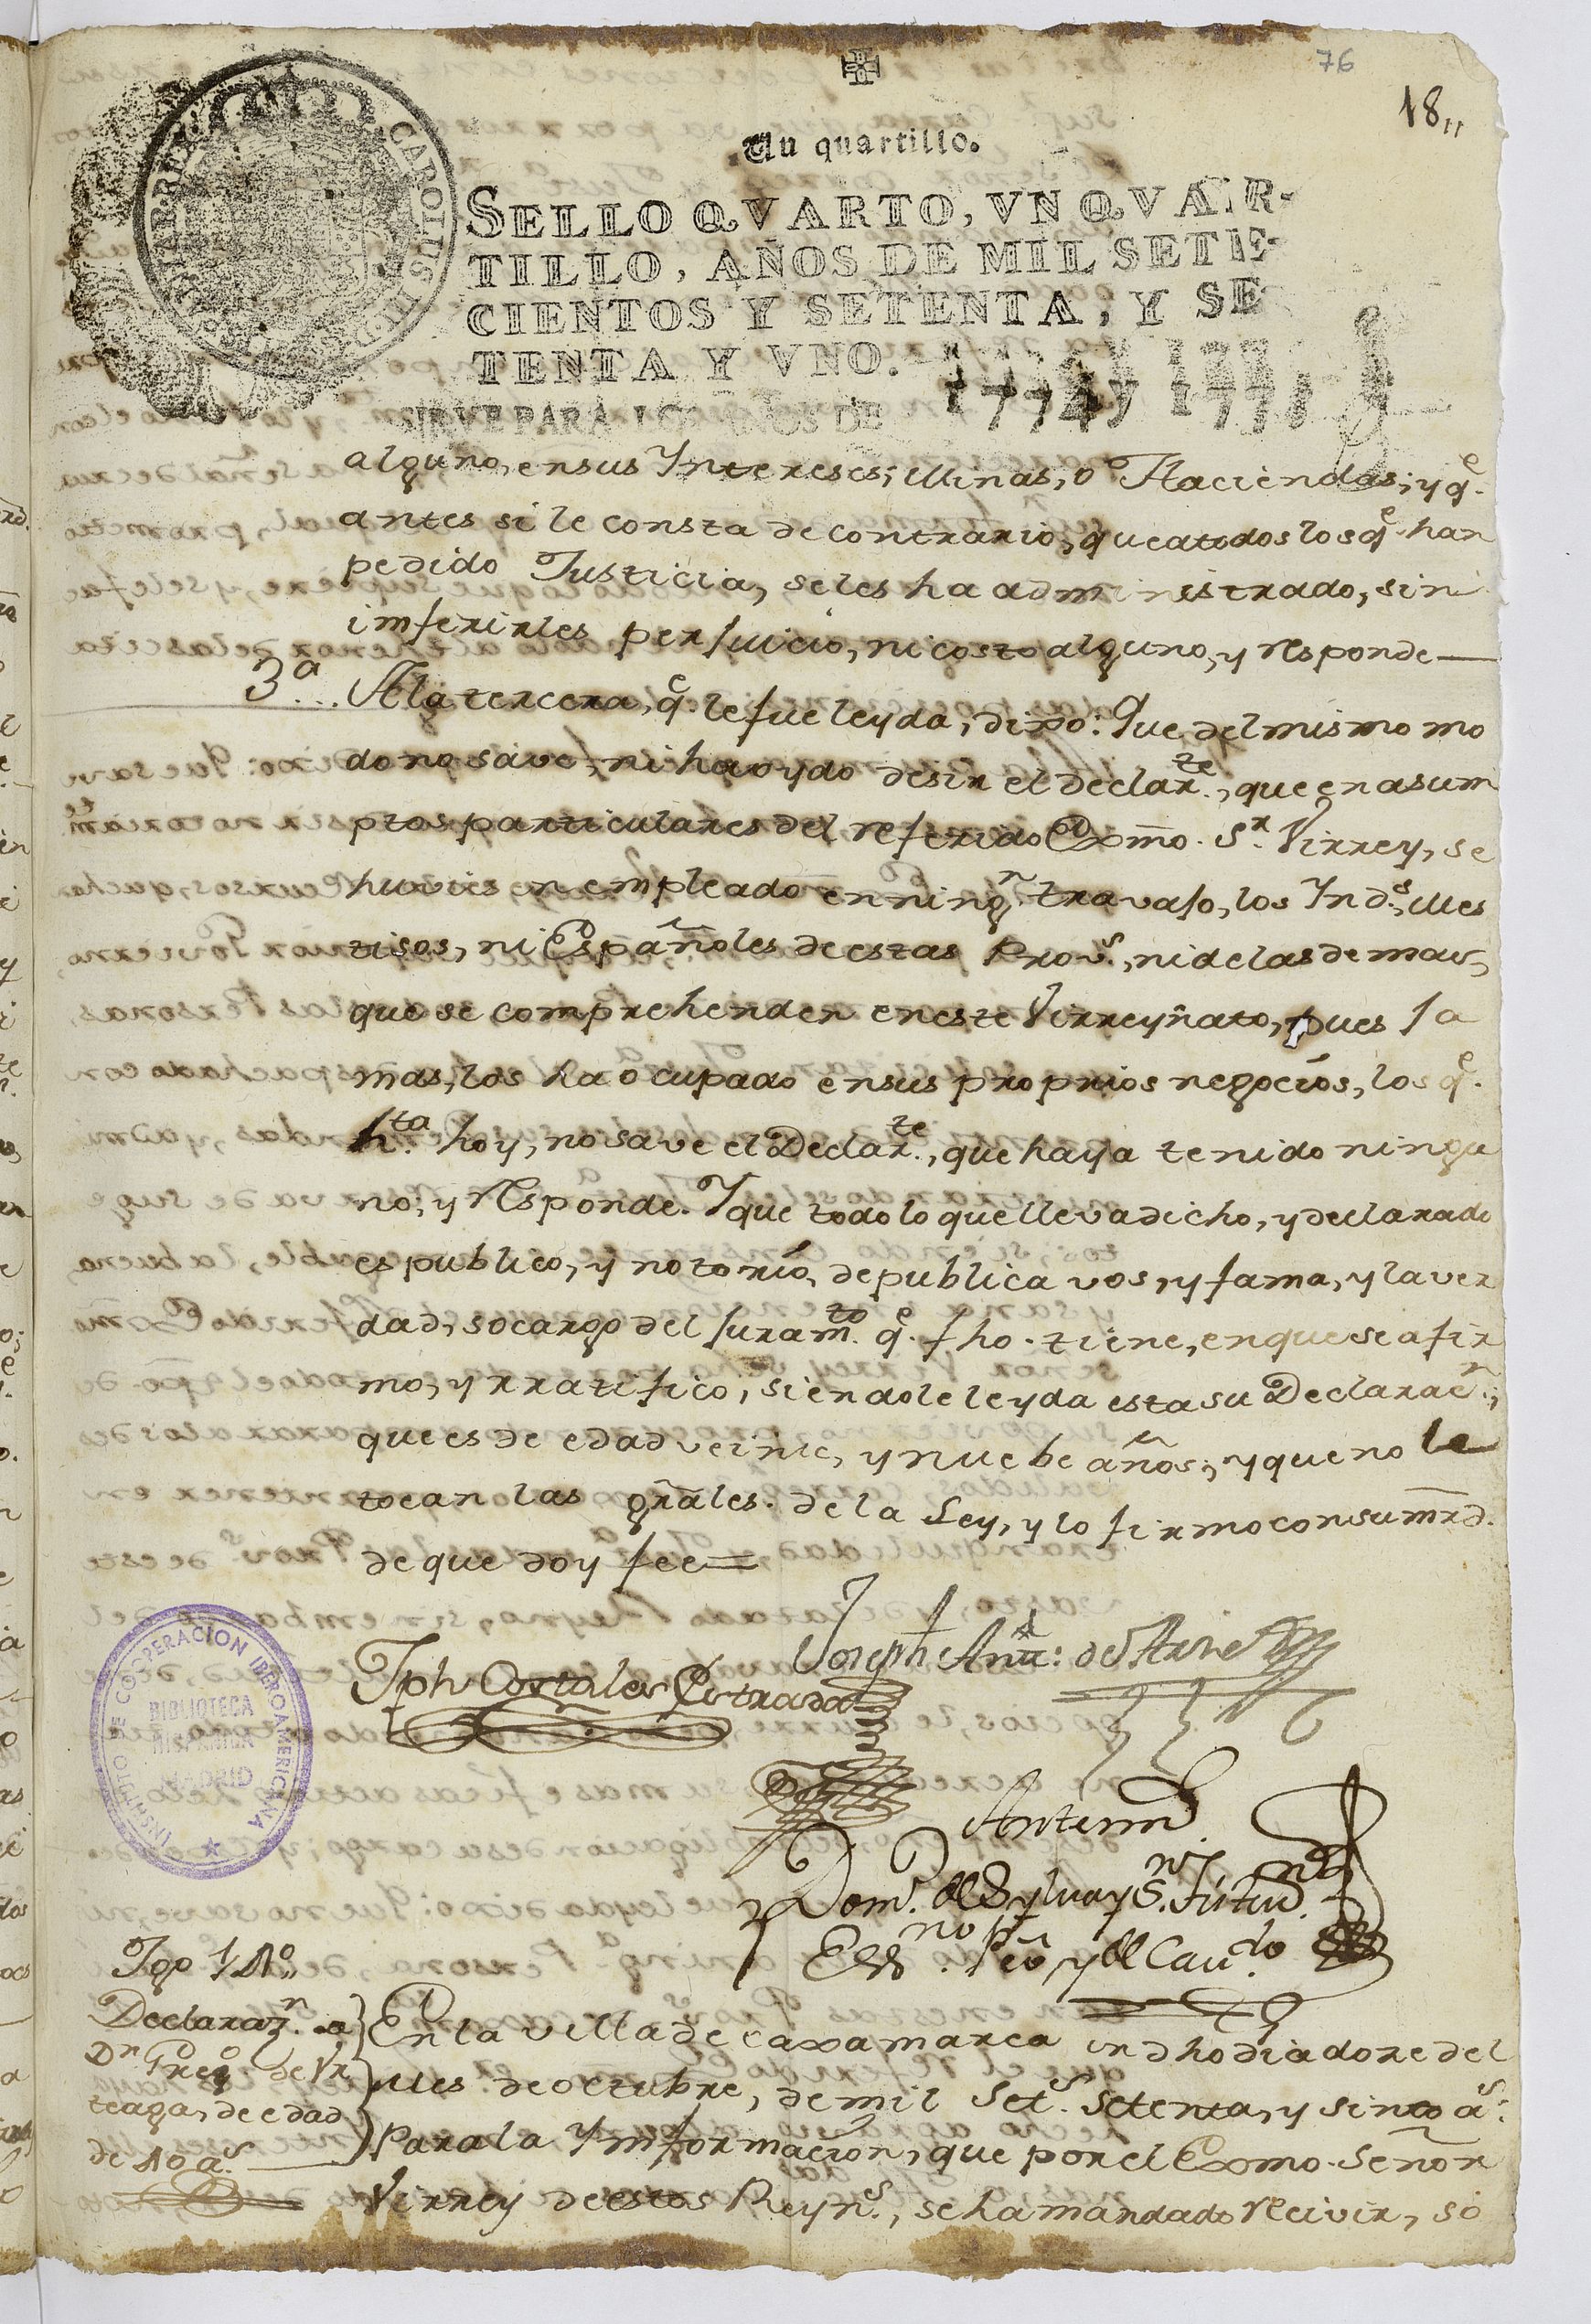 76
18,,
Un quartillo.
SELLO QVARTO, VN QVAR-
TILLO, AÑOS DE MIL SETE-
CIENTOS Y SETENTA, Y SE-
TENTA Y VNO.
SIRVE PARA LOS AÑOS DE 1774 y 1775
CAROLUS III
alguno, en sus Yntereses, Minas, o Haciendas; y q.e
antes si le consta de contrario, que a todos los q.e han
pedido Justicia, se les ha administrado, sin
imferirles perjuicio, ni costo alguno, y responde—
3.a... A la tercera, q.e le fue leyda, dixo: Que del mismo mo
do no save, ni ha oydo desir el Declar.te, que en asum
ptos particulares del referido Exmo. S.r Virrey, se
huviesen empleado en ning.n travajo, los Ind.s, Mes
tisos, ni Españoles de estas Prov.s, ni de las demas,
que se comprehenden en este Virreynato, pues ja
mas, los ha ocupado en sus proprios negocios, los q.e
h.ta hoy, no save el Declar.te, que haya tenido ningu
no, y responde. Y que todo lo que lleva dicho, y declarado
es publico, y notorio, de publica vos, y fama, y la ver
dad, so cargo del juram.to q.e fho. tiene, en que se afir
mo, y rratifico, siendole leyda esta su Declarac.n,
que es de edad veinte, y nuebe años; y que no le
tocan las grales. de la Ley, y lo firmo con su mrd.
de que doy fee=
Jph Cortales Estrada
Joseph Ant.: de
INSTITUTO DE COOPERACION IBEROAMERICANA
BIBLIOTECA
HISPANICA
MADRID
Antemi
Dom.o de Sylva y
Ess.no pu.co y de Cav.do
Tgo 11º,,
Declaraz.n a
D.n Greg.o de Vr
teaga, de edad
de 40 a.s
En la villa de caxamarca en dho dia dore del
Mes de octubre, de mil Set.s Setenta, y sinco a.s:
Para la Ymformacion, que por el Exmo. Señor
Virrey de estos Reyn.s, se ha mandado recivir, so